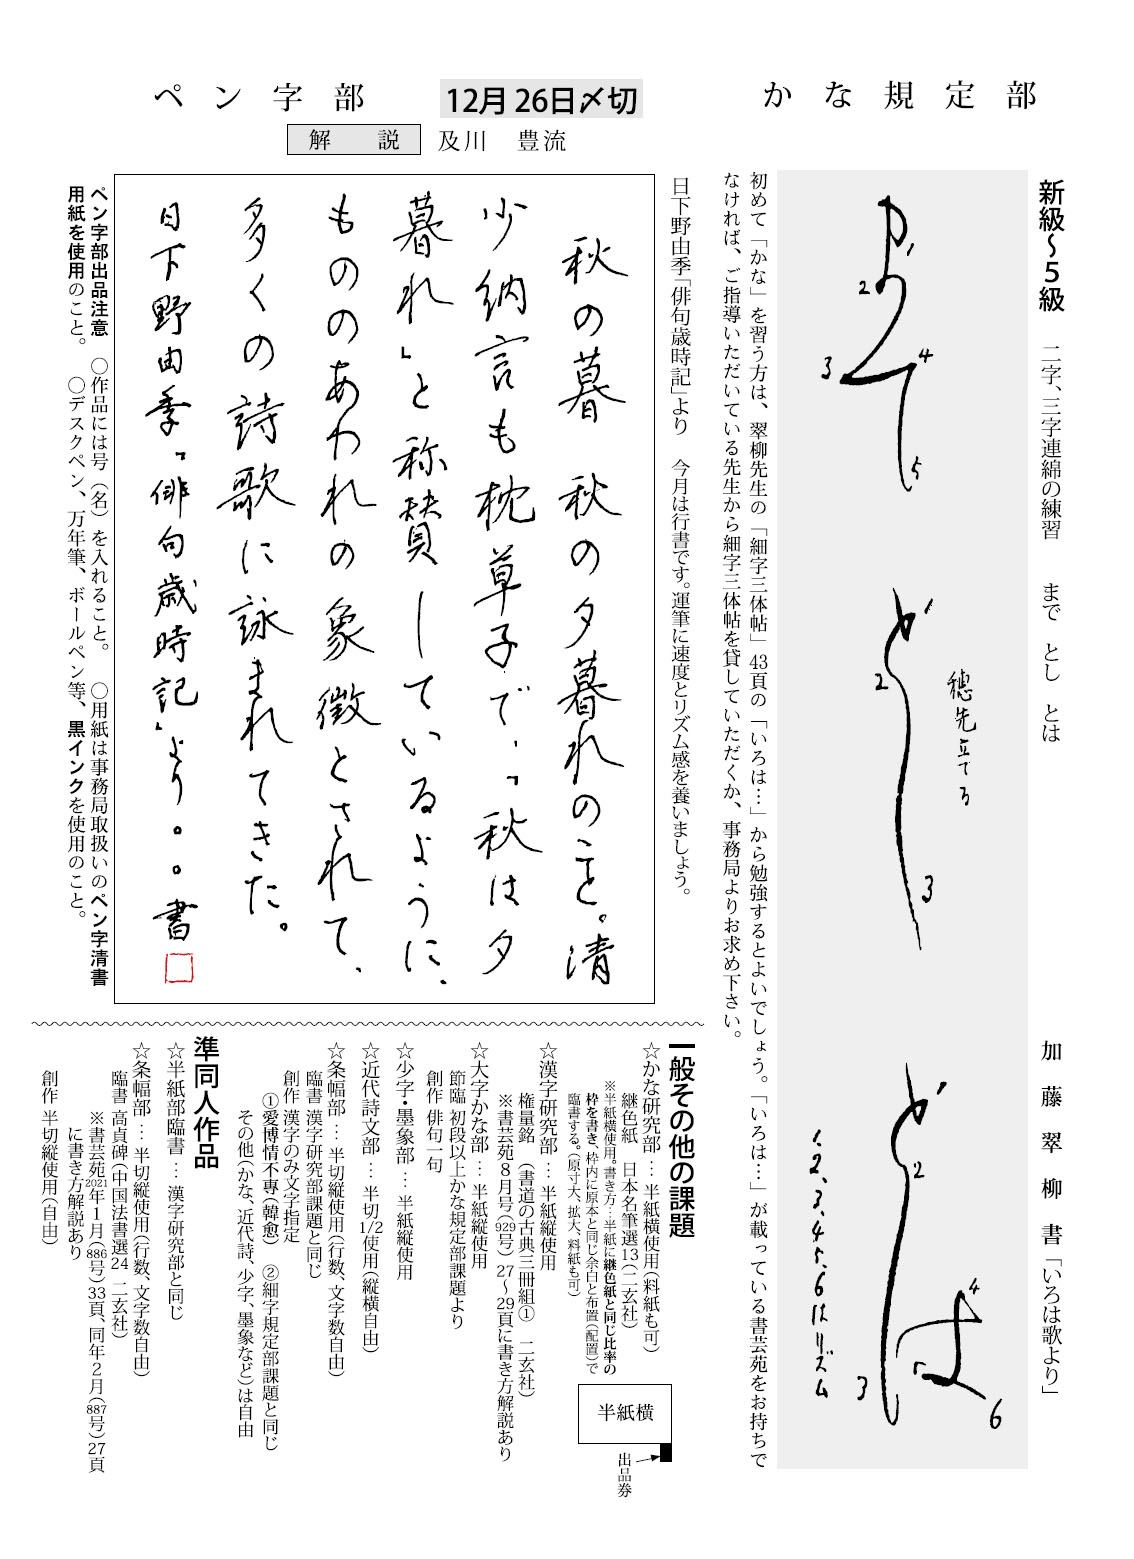 かな規定部
新級～5級　二字、三字連綿の練習　まで　とし　とは
加藤翠柳書「いろは歌より」
まで
1
2
3
4
5
とし
1
2
3
穂先立てる
とは
1
2
3
4
5
6
1.2.3.4.5.6はリズム
初めて「かな」を習う方は、翠柳先生の「細字三体帖」43頁の「いろは…」から勉強するとよいでしょう。「いろは…」が載っている書芸苑をお持ちで
なければ、ご指導いただいている先生から細字三体帖を貸していただくか、事務局よりお求め下さい。
12月26日〆切
ペン字部
解説　及川　豊流
日下野由季「俳句歳時記」より　今月は行書です。運筆に速度とリズム感を養いましょう。
秋の暮　秋の夕暮れのこと。清
少納言も枕草子で、「秋は夕
暮れ」と称賛しているように、
もののあわれの象徴とされて、
多くの詩歌に詠まれてきた。
日下野由季「俳句歳時記」より。。書
ペン字部出品注意　○作品には号（名）を入れること。　○用紙は事務局取扱いのペン字清書
用紙を使用のこと。　○デスクペン、万年筆、ボールペン等、黒インクを使用のこと。
一般その他の課題
☆かな研究部…半紙横使用（料紙も可）
継色紙　日本名筆選13（二玄社）
※半紙横使用。書き方…半紙に継色紙と同じ比率の
枠を書き、枠内に原本と同じ余白と布置（配置）で
臨書する。（原寸大、拡大、料紙も可）
半紙横
出品券
☆漢字研究部…半紙縦使用
権量銘　（書道の古典三冊組①　二玄社）
※書芸苑8月号（929号）27～29頁に書き方解説あり
☆大字かな部…半紙縦使用
節臨 初段以上かな規定部課題より
創作 俳句一句
☆少字・墨象部…半紙縦使用
☆近代詩文部…半切1/2使用（縦横自由）
☆条幅部…半切縦使用（行数、文字数自由）
臨書 漢字研究部課題と同じ
創作 漢字のみ文字指定
①愛博情不専（韓愈）　②細字規定部課題と同じ
その他（かな、近代詩、少字、墨象など）は自由
準同人作品
☆半紙部臨書…漢字研究部と同じ
☆条幅部…半切縦使用（行数、文字数自由）
臨書 高貞碑（中国法書選24　二玄社）
※書芸苑2021年1月（886号）33頁、同年2月（887号）27頁
に書き方解説あり
創作 半切縦使用（自由）